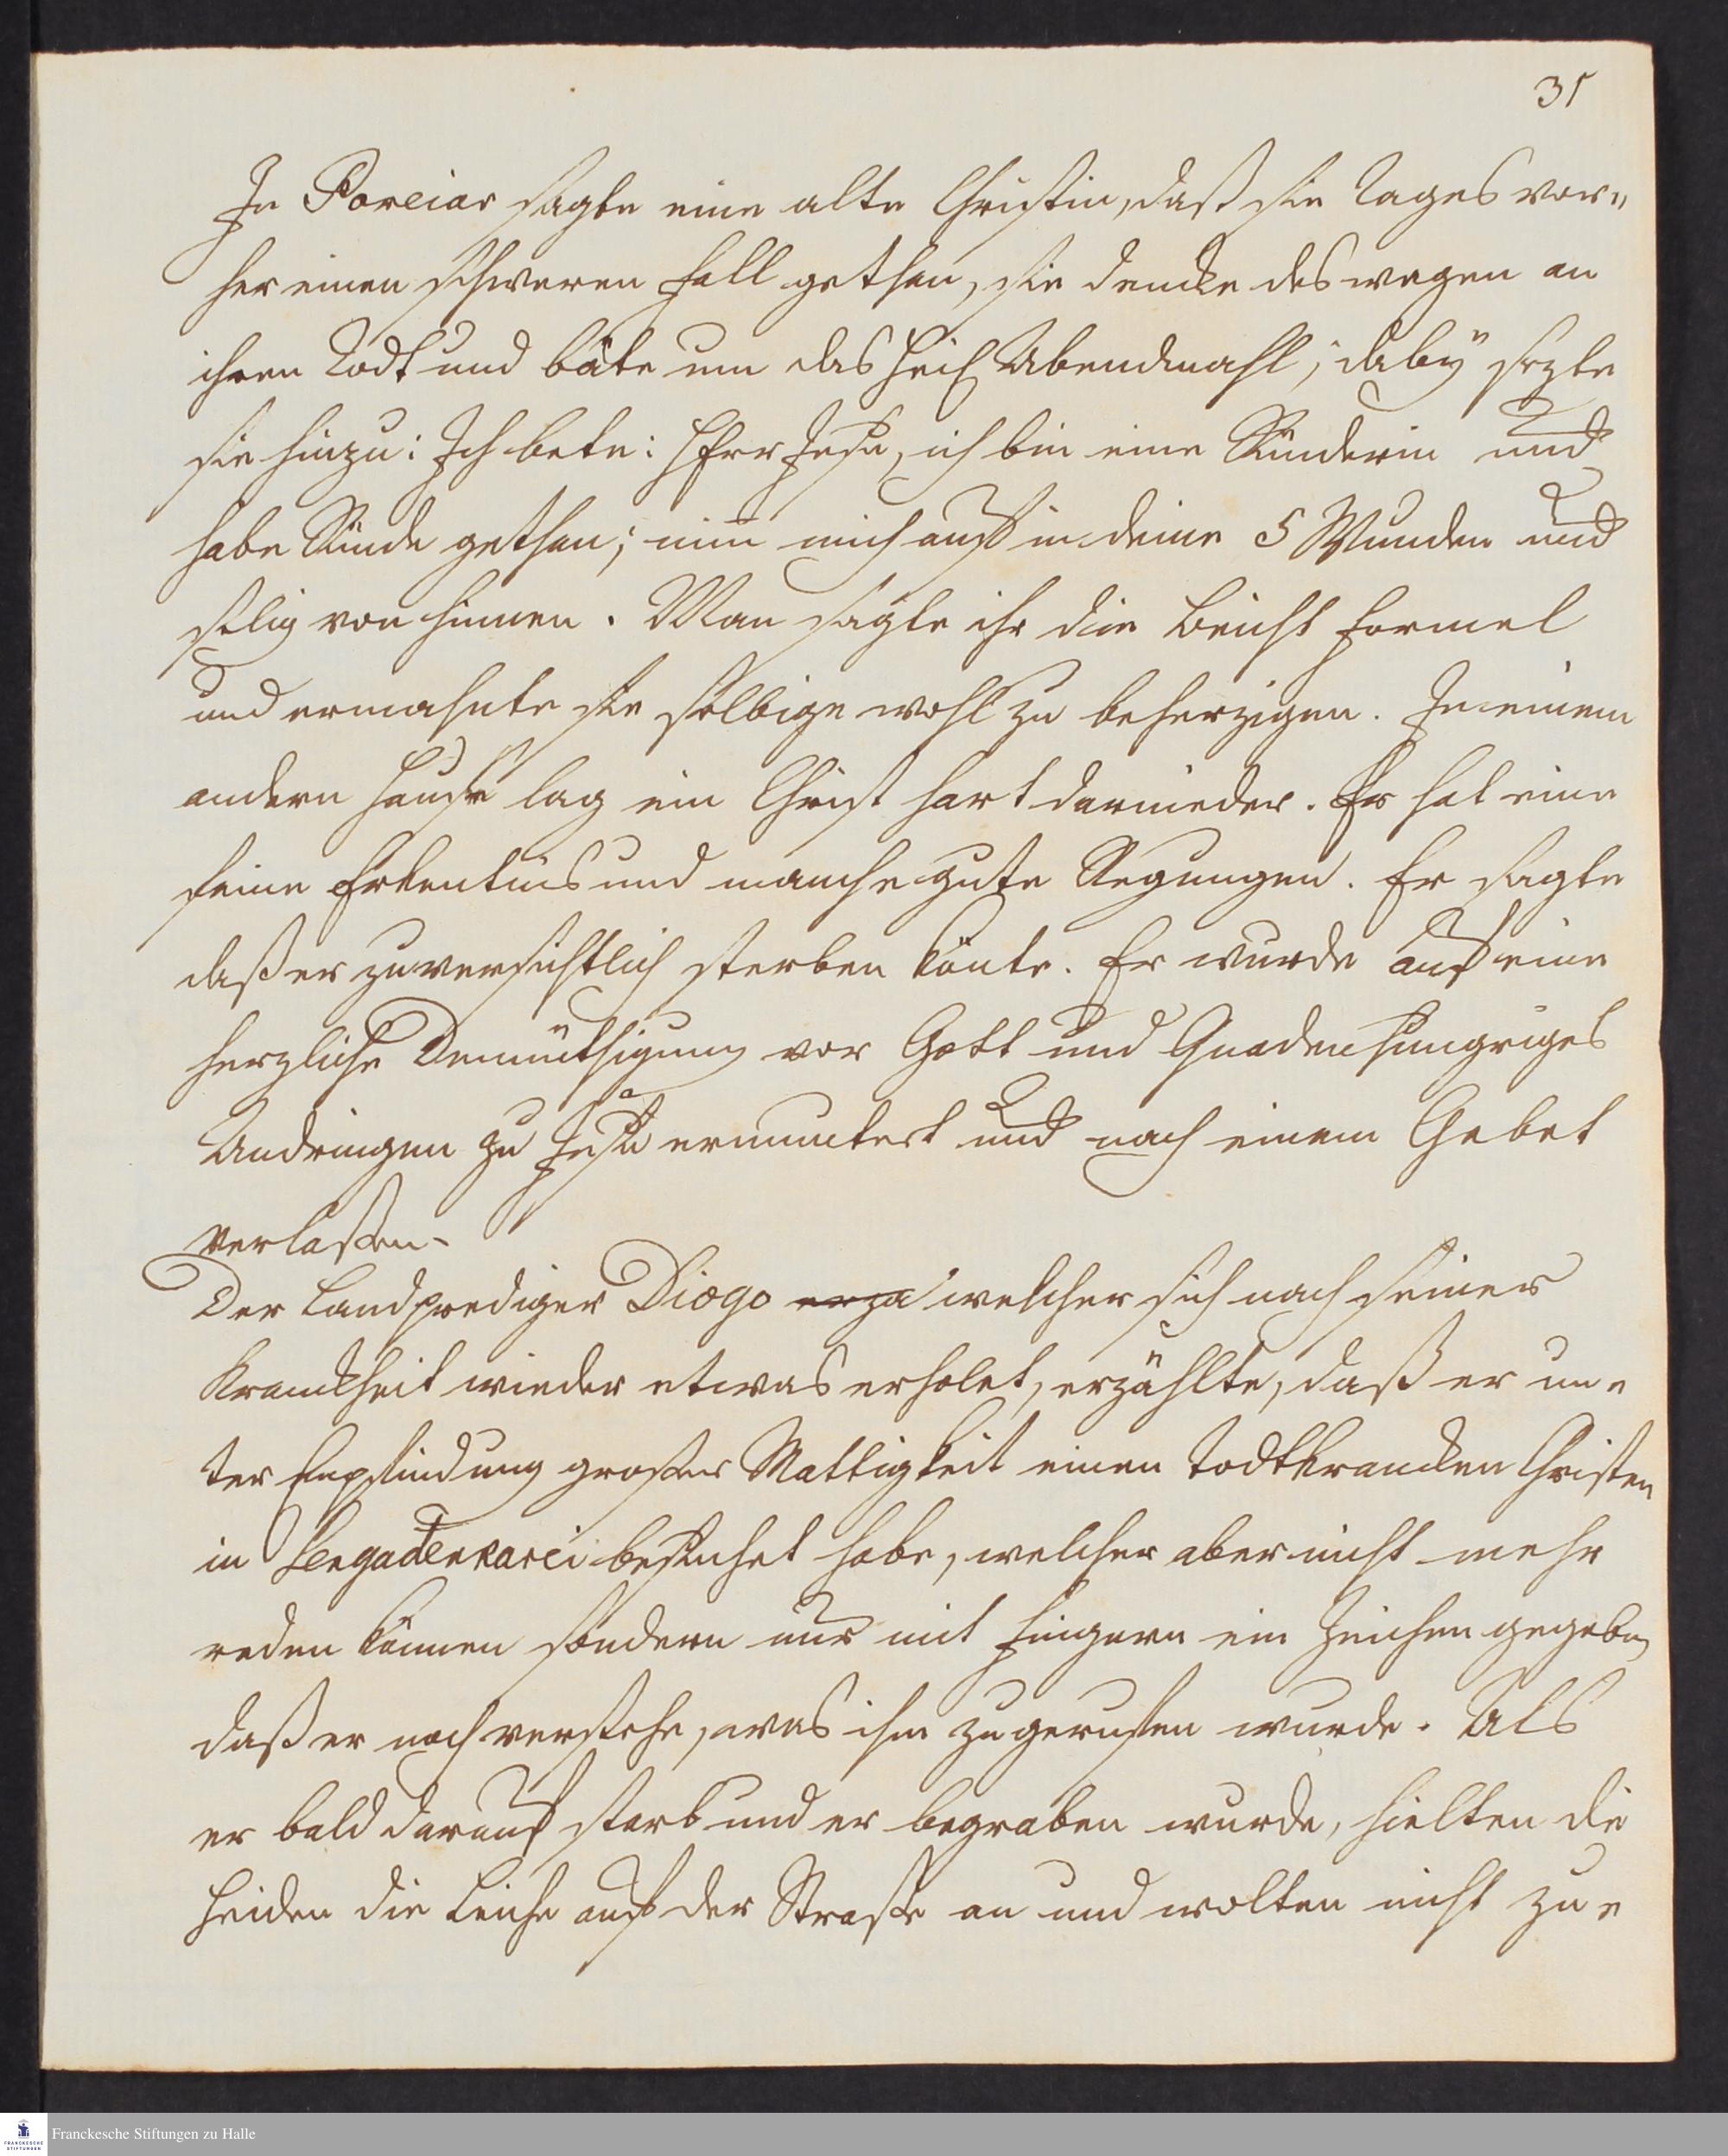 31
In Poreiar sagte eine alte Christin, daß sie Tages vor„
her einen schweren Fall gethan, sie dencke deswegen an
ihren Todt und bäte um das Heil. Abendmahl; dabey sezte
sie hinzu: Ich bete: HErr Jesu, ich bin eine Sünderin und
habe Sünde gethan; nim̅ mich auf in deine 5 Wunden und
selig von hinnen. Man sagte ihr die Beicht Formel
und ermahnte sie selbige wohl zu beherzigen. In einem
andern Hause lag ein Christ hart darnieder. Er hat eine
feine Erkentnis und manche gute Regungen. Er sagte
daß er zuversichtlich sterben könte. Er wurde auf eine
herzliche Demüthigung vor Gott und Gnadenhungriges
Andringen zu Jesu ermuntert und nach einem Gebet
verlaßen.
Der Landprediger Diogo erzä welcher sich nach seiner
Kranckheit wieder etwas erholet, erzählte, daß er un„
ter Empfindung großer Mattigkeit einen todtkrancken Christen
in Sengadenkarei besuchet habe, welcher aber nicht mehr
reden können sondern nur mit Fingern ein Zeichen gegeben
daß er noch verstehe, was ihm zugerufen wurde. Als
er bald darauf starb und er begraben wurde, hielten die
Heiden die Leiche auf der Straße an und wolten nicht zu„
Franckesche Stiftungen zu Halle